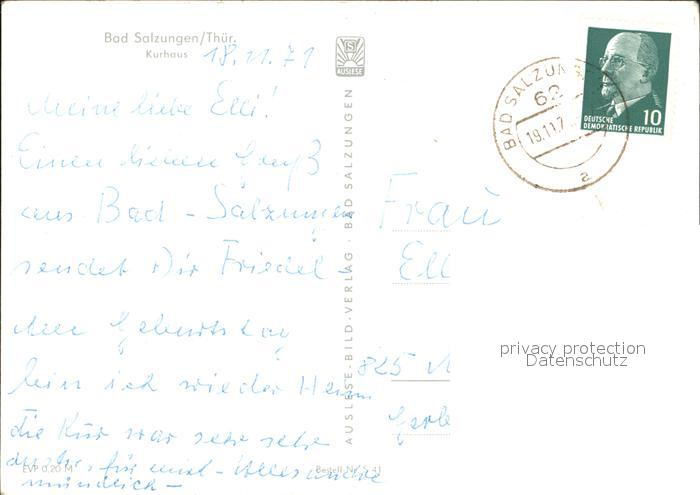 Bad Salzungen/Thür.
Kurhaus
18.11.71
Meine liebe Elli!
Einen lieben Gruß
aus Bad - Salzungen
sendet Dir Friedel -
Geburtstag
bin ich wieder
die Kur war sehr sehr
für mich - Alles andre
mündlich -
EVP 0,20 M
Bestell Nr. S 41
AUSLESE
AUSLESE-BILD-VERLAG · BAD SALZUNGEN
BAD SALZUN
62
19.11.7
a
DEUTSCHE
DEMOKRATISCHE REPUBLIK
10
Frau
Ell
825 M
privacy protection
Datenschutz